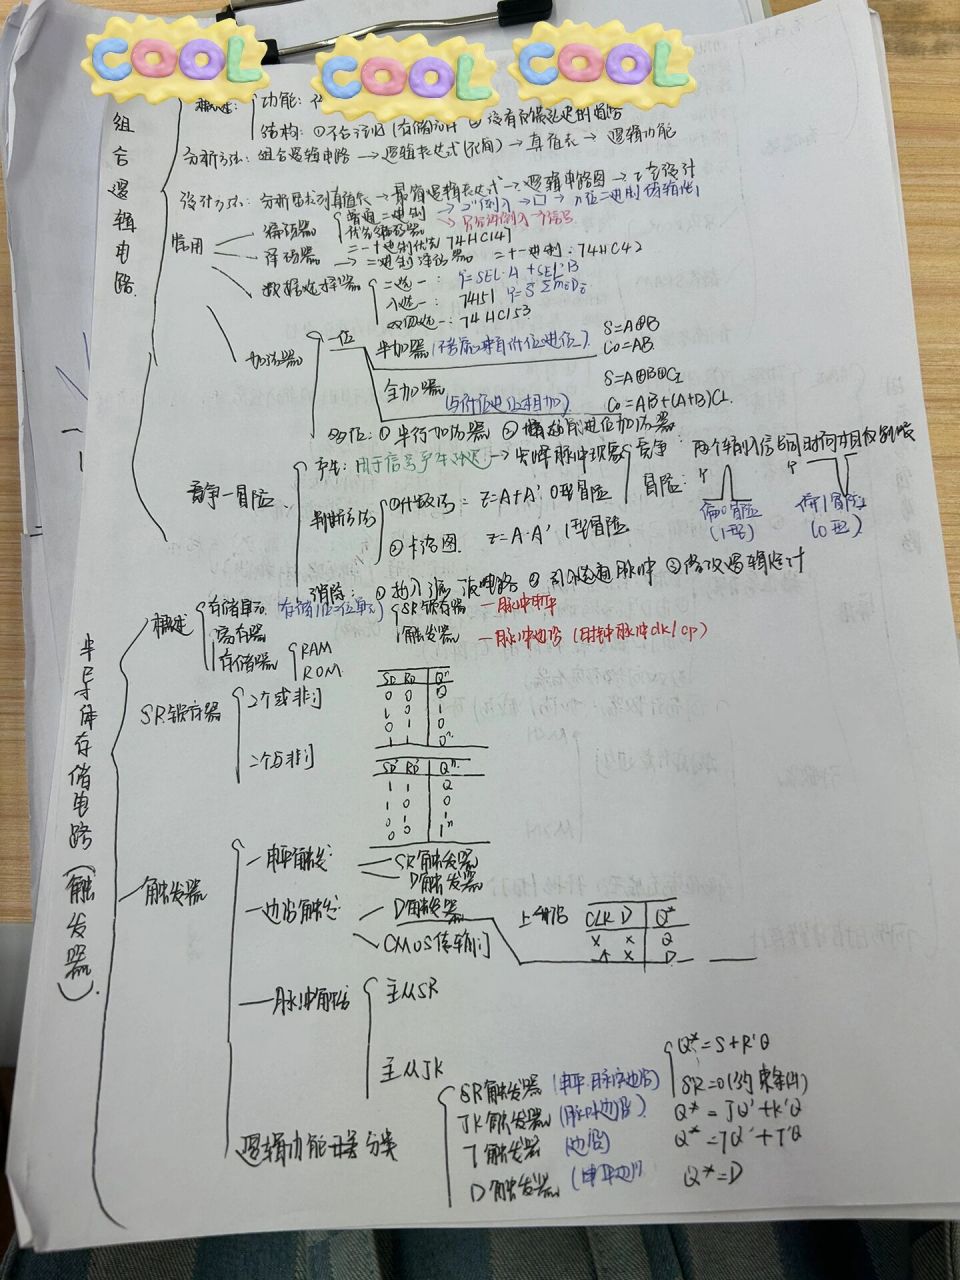 COOL COOL COOL
组合逻辑电路
概述: 功能:
结构: ①不含记忆(存储)元件 ②没有反馈延迟的电路
分析方法: 组合逻辑电路 → 逻辑表达式(化简) → 真值表 → 逻辑功能
设计方法: → 最简逻辑表达式 → 逻辑电路图 → 工艺设计
常用
编码器 普通二进制
优先编码器
二-十进制优先 74HC147
译码器 → 二进制译码器 二-十进制: 74HC42
数据选择器 二选一: Y=SEL'·A+SEL·B
八选一: 74151
双四选一: 74HC153
加法器 一位 半加器 S=A⊕B
CO=AB
全加器 (与低位进位相加) S=A⊕B⊕CI
CO=AB+(A+B)CI
多位: ①串行加法器 ②超前进位加法器
竞争-冒险
产生: 由于信号产生延迟 → 尖峰脉冲现象 竞争: 两个输入信号同时向相反
冒险: Y Y
偏0冒险 (1型) 偏1冒险 (0型)
判断方法 ①代数法: Z=A+A' 0型冒险
②卡诺图. Z=A·A' 1型冒险
消除: ①接入滤波电路 ②引入选通脉冲 ③修改逻辑设计
半导体存储电路(触发器).
概述 存储单元 (存储1位单元) SR锁存器 —脉冲电平
触发器 —脉冲边沿 (时钟脉冲clk/cp)
寄存器
存储器 RAM
ROM
SR锁存器
2个或非门
SD RD Q^n
0 0 Q
1 0 1
0 1 0
1 1 0^n
二个与非门
SD' RD' Q^n
1 1 Q
1 0 0
0 1 1
0 0 1^n
触发器
—电平触发 SR触发器
D触发器
—边沿触发 D触发器 上升沿 CLK D Q*
X X Q
↑ X D
CMOS传输门
—脉冲触发 主从SR
主从JK
逻辑功能 分类
SR触发器 (电平.脉冲边沿) Q*=S+R'Q
SR=0(约束条件)
JK触发器 (脉冲边沿) Q*=JQ'+K'Q
T触发器 (边沿) Q*=TQ'+T'Q
D触发器 (电平边沿 Q*=D